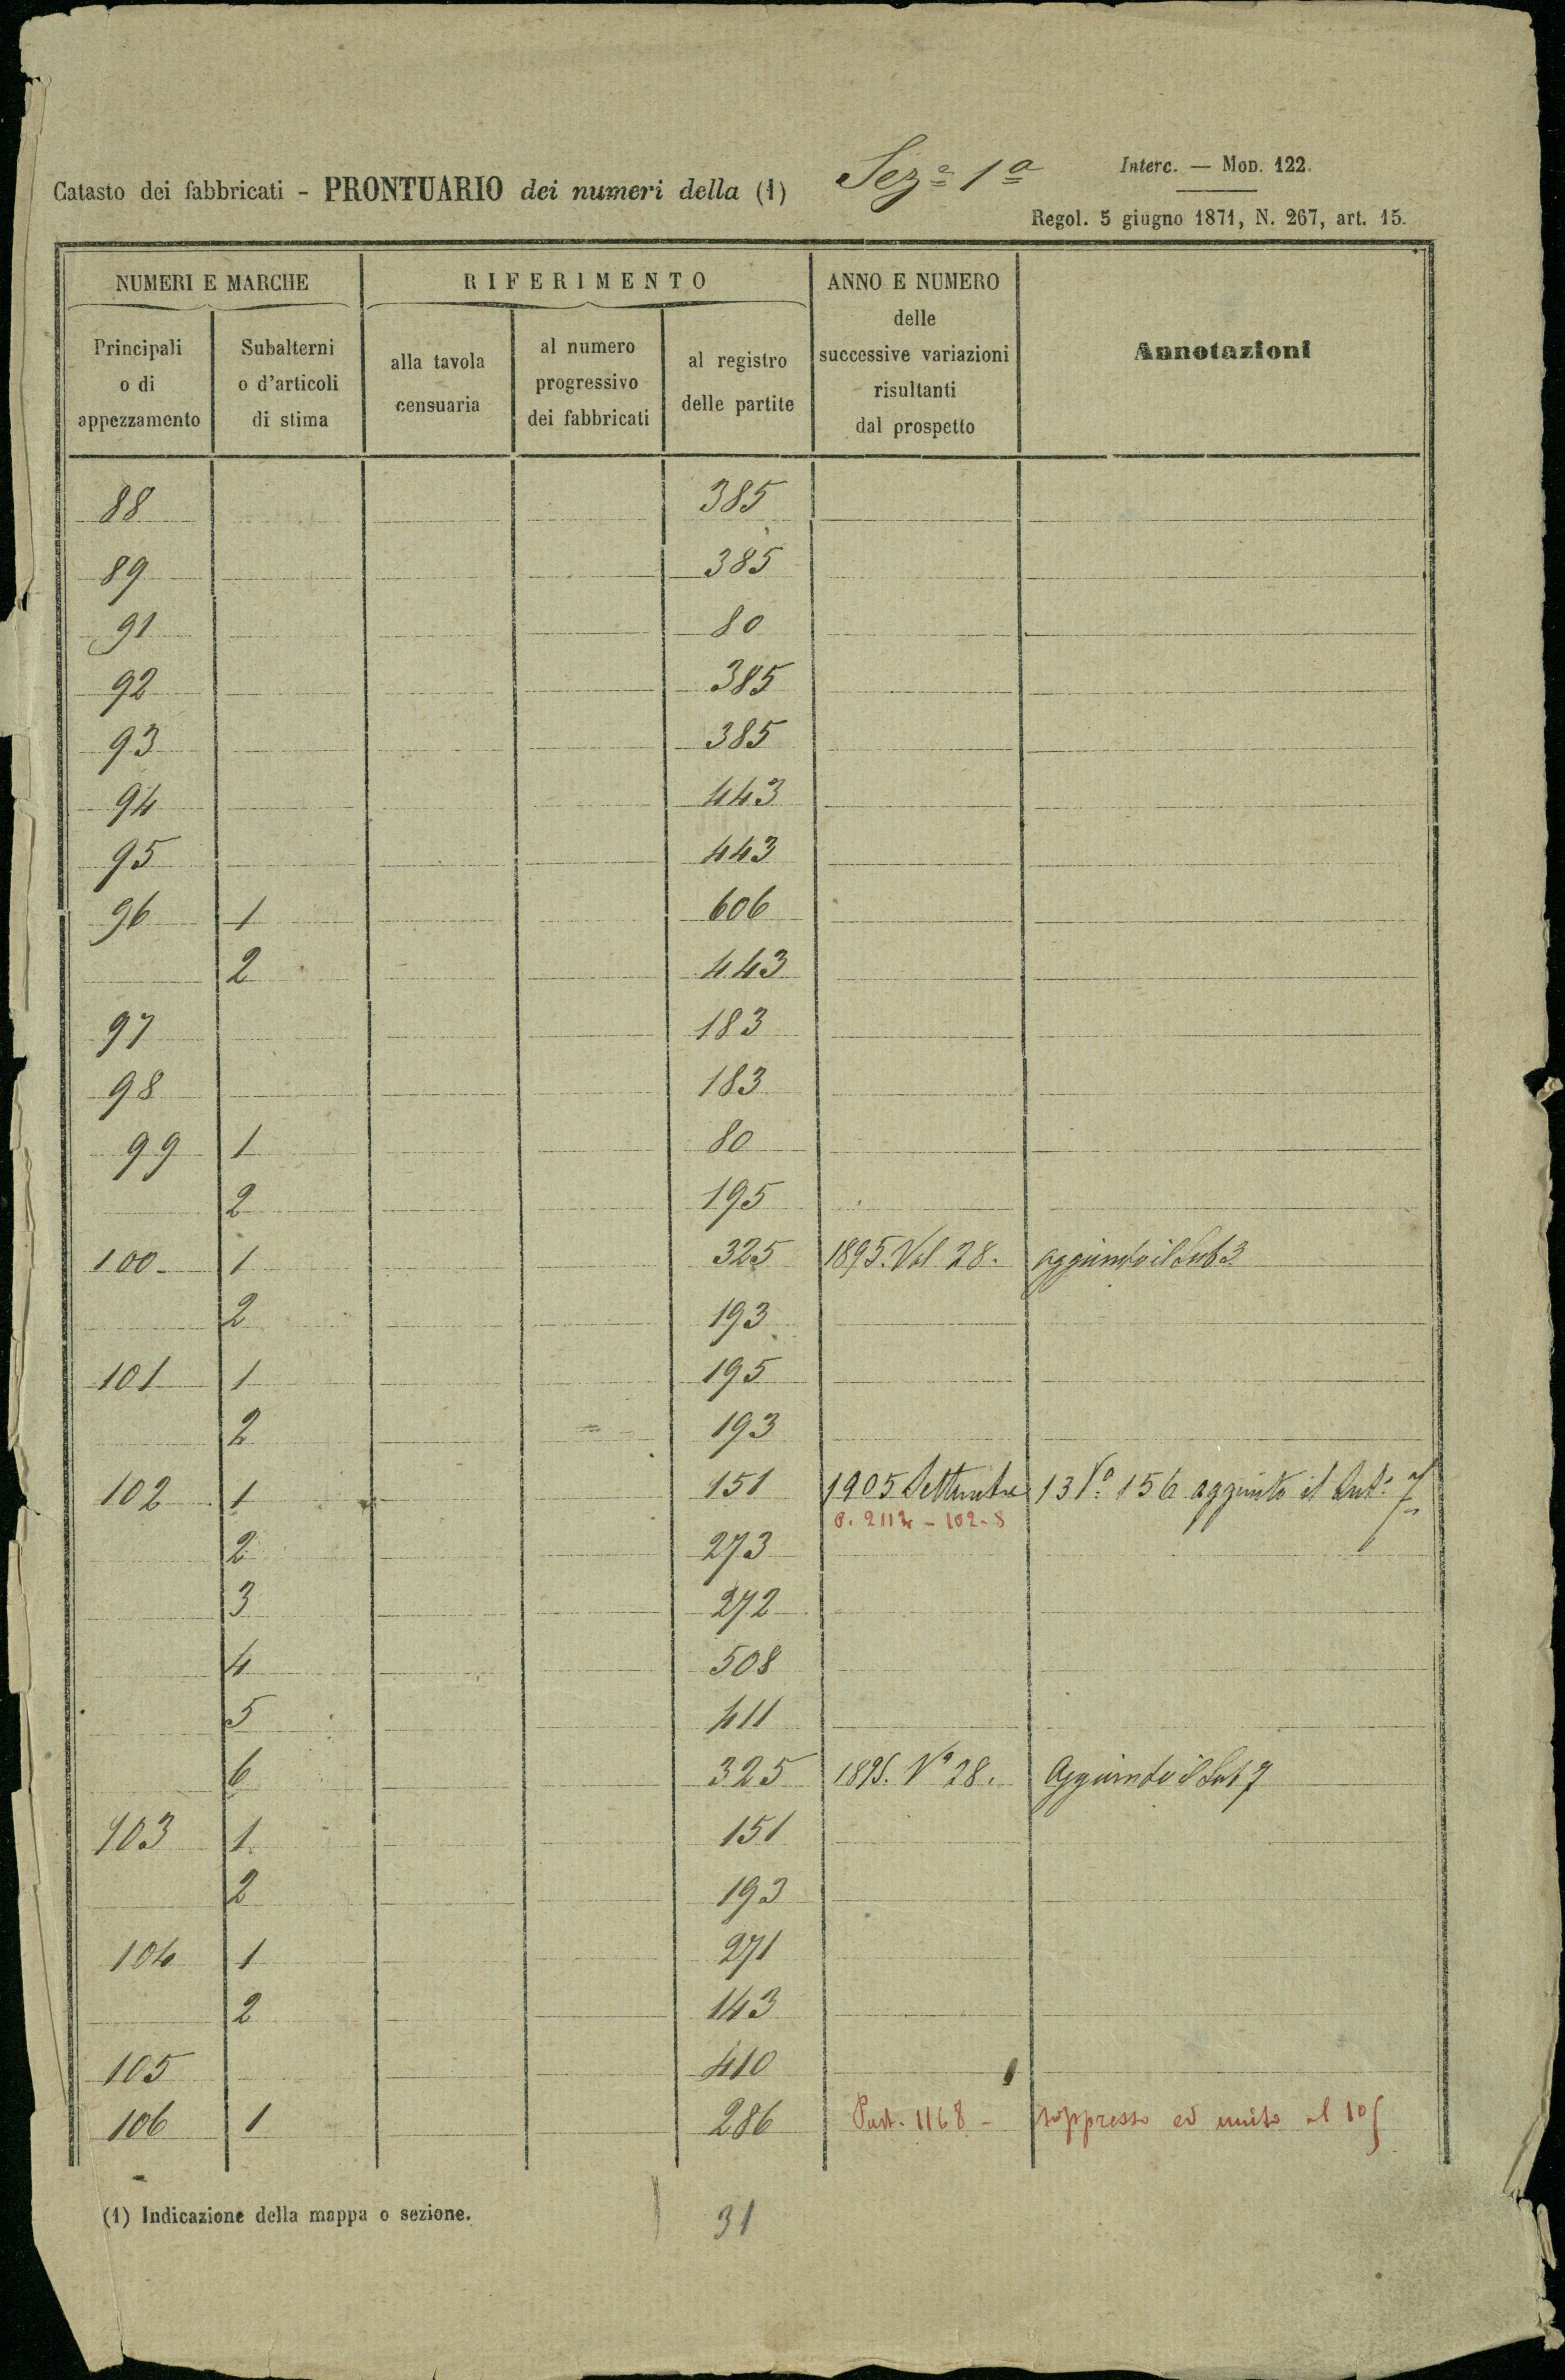 Interc. — Mod. 122.
Catasto dei fabbricati - PRONTUARIO dei numeri della (1) Sez.e 1a
Regol. 5 giugno 1871, N. 267, art. 15.
NUMERI E MARCHE RIFERIMENTO ANNO E NUMERO delle successive variazioni risultanti dal prospetto Annotazioni
Principali o di appezzamento Subalterni o d'articoli di stima alla tavola censuaria al numero progressivo dei fabbricati al registro delle partite
88 385
89 385
91 80
92 385
93 385
94 443
95 443
96 1 606
2 443
97 183
98 183
99 1 80
2 195
100 - 1 325 1895. Vol 28. aggiunto il Sub 3
2 193
101 1 195
2 193
102 1 151 1905 Settembre 13 Vo. 156 aggiunto il Sub: 7
102-8
2 273
3 272
4 508
5 411
6 325 1895. No 28. Aggiunto il Sub 7
103 1 151
2 193
104 1 271
2 143
105 410
106 1 286 Part. 1168 - soppresso ed unito al 105
(1) Indicazione della mappa o sezione.
31